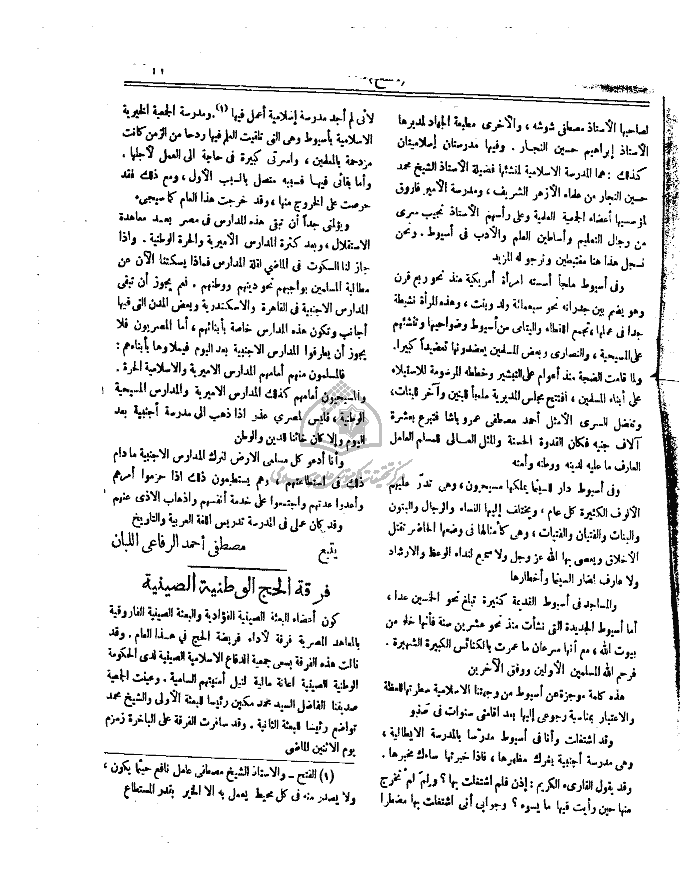 ١١
لصاحبها الأستاذ مصطفى شوشه ، والأخرى مطبعة الجهاد لمديرها
الأستاذ إبراهيم حسين النجار . وفيها مدرستان إسلاميتان
كذلك : هما المدرسة الاسلامية لمنشئها فضيلة الأستاذ الشيخ محمد
حسين النجار من علماء الأزهر الشريف ، ومدرسة الأمير فاروق
لمؤسسيها أعضاء الجمعية العلمية وعلى رأسهم الأستاذ نجيب سرى
من رجال التعليم وأساطين العلم والأدب فى أسيوط . ونحن
نسجل هذا هنا مغتبطين ونرجو له المزيد
وفى أسيوط ملجأ أسسته امرأة أمريكية منذ نحو ربع قرن
وهو يضم بين جدرانه نحو سبعمائة ولد وبنت ، وهذه المرأة نشيطة
جدا فى عملها ، تجمع اللقطاء واليتامى من أسيوط وضواحيها وتنشئهم
على المسيحية ، والنصارى وبعض المسلمين يعضدونها تعضيداً كبيرا.
ولما قامت الضجة منذ أعوام على التبشير وخططه المرسومة للاستيلاء
على أبناء المسلمين ، افتتح مجلس المديرية ملجأ للبنين وآخر للبنات ،
وتفضل السرى الأمثل أحمد مصطفى عمرو باشا فتبرع بعشرة
آلاف جنيه فكان القدوة الحسنة والمثل العالى للمسلم العامل
العارف ما عليه لدينه ووطنه وأمته
وفى أسيوط دار للسينما يملكها مسيحيون ، وهى تدرّ عليهم
الألوف الكثيرة كل عام ، ويختلف إليها النساء والرجال والبنون
والبنات والفتيان والفتيات ، وهى كأمثالها فى وضعها الحاضر تقتل
الأخلاق ويعصى بها الله عز وجل ولا سميع لنداء الوعظ والارشاد
ولا عارف لمضار السينما وأخطارها
والمساجد فى أسيوط القديمة كثيرة تبلغ نحو الخمسين عدا ،
أما أسيوط الجديدة التى نشأت منذ نحو عشرين سنة فأنها خلو من
بيوت الله ، مع أنها سرعان ما عمرت بالكنائس الكبيرة الشهيرة .
فرحم الله المسلمين الأولين ووفق الآخرين
هذه كلمة موجزة عن أسيوط من وجهتنا الاسلامية سطرتها للعظة
والاعتبار بمناسبة رجوعى إليها بعد اقامتى سنوات فى
وقد اشتغلت وأنا فى أسيوط مدرسا بالمدرسة الايطالية ،
وهى مدرسة أجنبية يغرك مظهرها ، فاذا خبرتها ساءك مخبرها .
وقد يقول القارىء الكريم : إذن فلم اشتغلت بها ؟ ولم لم تخرج
منها حين رأيت فيها ما يسوء ؟ وجوابى أنى اشتغلت بها مضطرا
لأنى لم أجد مدرسة إسلامية أعمل فيها (١) . ومدرسة الجمعية الخيرية
الاسلامية بأسيوط وهى التى تلقيت العلم فيها ردحا من الزمن كانت
مزدحمة بالمعلمين ، وأسرتى كبيرة فى حاجة الى العمل لأجلها .
وأما بقائى فيها فسببه متصل بالسبب الأول ، ومع ذلك فقد
حرصت على الخروج منها ، وقد خرجت هذا العام كما سيجىء
ويؤلمنى جداً أن تبقى هذه المدارس فى مصر بعد معاهدة
الاستقلال ، وبعد كثرة المدارس الأميرية والحرة الوطنية . واذا
جاز لنا السكوت فى الماضى لقلة المدارس فماذا يسكتنا الآن عن
مطالبة المسلمين بواجبهم نحو دينهم ووطنهم . نعم يجوز أن تبقى
المدارس الاجنبية فى القاهرة والاسكندرية وبعض المدن التى فيها
أجانب وتكون هذه المدارس خاصة بأبنائهم ، أما المصريون فلا
يجوز أن يطرقوا المدارس الاجنبية بعد اليوم فيملاوها بأبناءهم :
فالمسلمون منهم أمامهم المدارس الأميرية والاسلامية الحرة .
والمسيحيون أمامهم كذلك المدارس الاميرية والمدارس المسيحية
الوطنية ، فليس لمصرى عذر اذا ذهب الى مدرسة أجنبية بعد
اليوم وإلا كان خائنا للدين والوطن
وأنا أدعو كل مسلمى الارض لترك المدارس الاجنبية ما دام
ذلك فى استطاعتهم ، وهم يستطيعون ذلك اذا حزموا أمرهم
وأعدوا عدتهم واجتمعوا على خدمة أنفسهم واذهاب الاذى عنهم
وقد كان عملى فى المدرسة تدريس اللغة العربية والتاريخ
يتبع مصطفى أحمد الرفاعى اللبان
فرقة الحج الوطنية الصينية
كون أعضاء البعثة الصينية الفؤادية والبعثة الصينية الفاروقية
بالمعاهد المصرية فرقة لأداء فريضة الحج فى هذا العام . وقد
نالت هذه الفرقة بسعى جمعية الدفاع الاسلامية الصينية لدى الحكومة
الوطنية الصينية اعانة مالية لنيل أمنيتهم السامية . وعينت الجمعية
صديقنا الفاضل السيد محمد مكين رئيسا للبعثة الأولى والشيخ محمد
تواضع رئيسا للبعثة الثانية . وقد سافرت الفرقة على الباخرة زمزم
يوم الاثنين الماضى
(١) الفتح ـ والاستاذ الشيخ مصطفى عامل نافع حيثما يكون ،
ولا يصدر منه فى كل محيط يعمل به الا الخير بقدر المستطاع